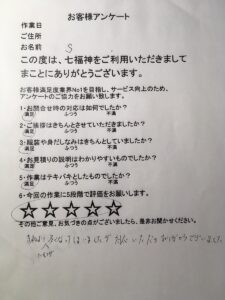 お客様アンケート
作業日
ご住所
お名前 S
この度は、七福神をご利用いただきまして
まことにありがとうございます。
お客様満足度業界No1を目指し、サービス向上のため、
アンケートのご協力をお願い致します。
1・お問合せ時の対応は如何でしたか？
満足 ふつう 不満
2・ご挨拶はきちんとさせていただきましたか？
満足 ふつう 不満
3・服装や身だしなみはきちんとしていましたか？
満足 ふつう 不満
4・お見積りの説明はわかりやすいものでしたか？
満足 ふつう 不満
5・作業はテキパキとしたものでしたか？
満足 ふつう 不満
6・今回の作業に5段階で評価をお願いします。
その他ご意見、お気づきの点がございましたら、是非お聞かせください。
ありがとうございました。